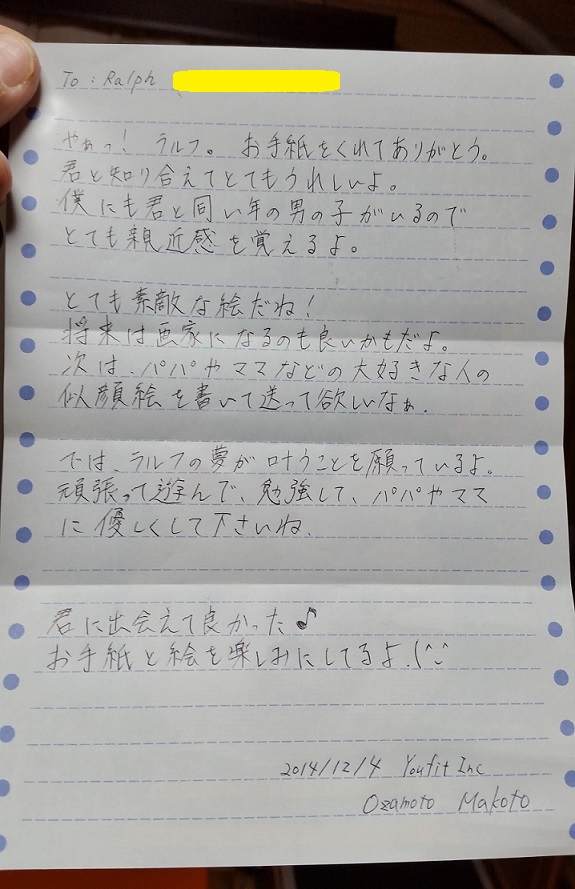 To : Ralph
やぁっ! ラルフ。 お手紙をくれてありがとう。
君と知り合えてとてもうれしいよ。
僕にも君と同い年の男の子がいるので
とても親近感を覚えるよ。
とても素敵な絵だね!
将来は画家になるのも良いかもだよ。
次は、パパやママなどの大好きな人の
似顔絵を書いて送って欲しいなぁ.
では、ラルフの夢が叶うことを願っているよ。
頑張って遊んで、勉強して、パパやママ
に優しくして下さいね.
君に出会えて良かった♪
お手紙と絵を楽しみにしてるよ.(^^
2014/12/4 Youfit Inc
Ozamoto Makoto